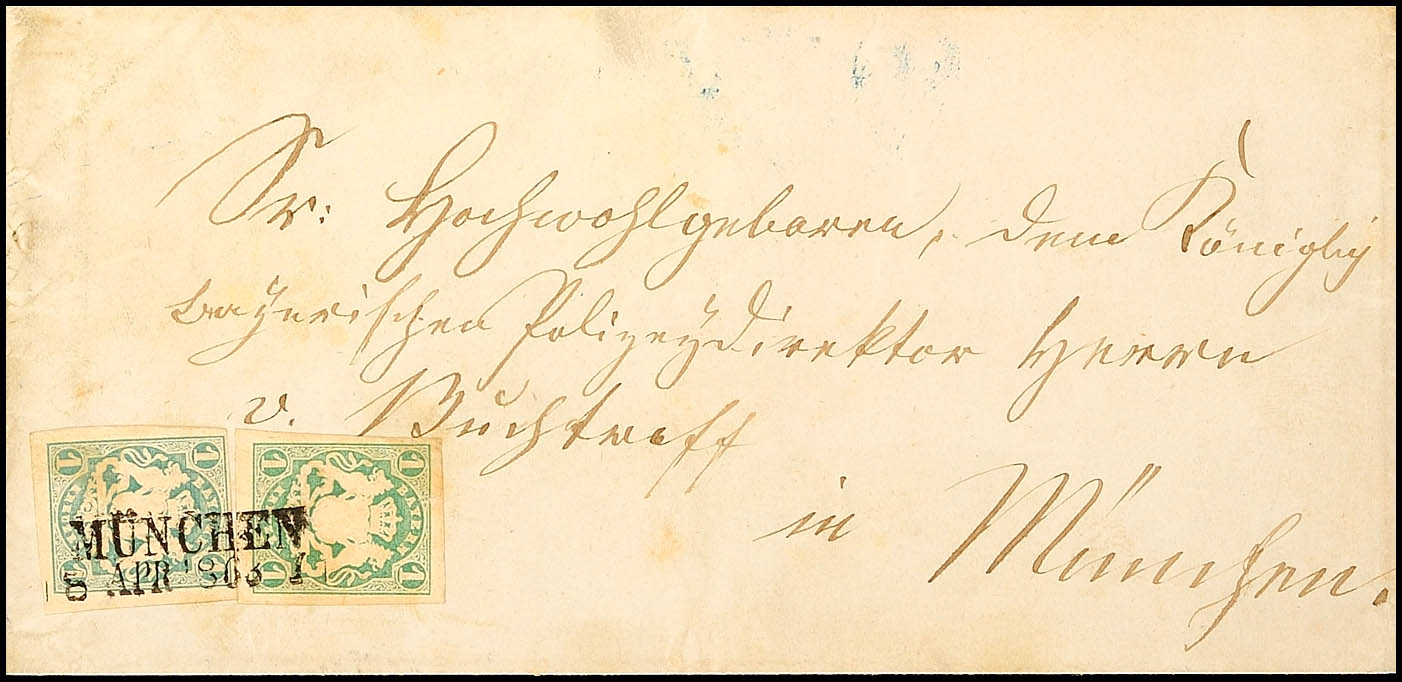 Sr: Hochwohlgeboren, dem Königlich
bayerischen Polizeydirektor Herrn
v. Buchtroff
in München.
1 1 1 1
BAYERN
MÜNCHEN
8 APR 1